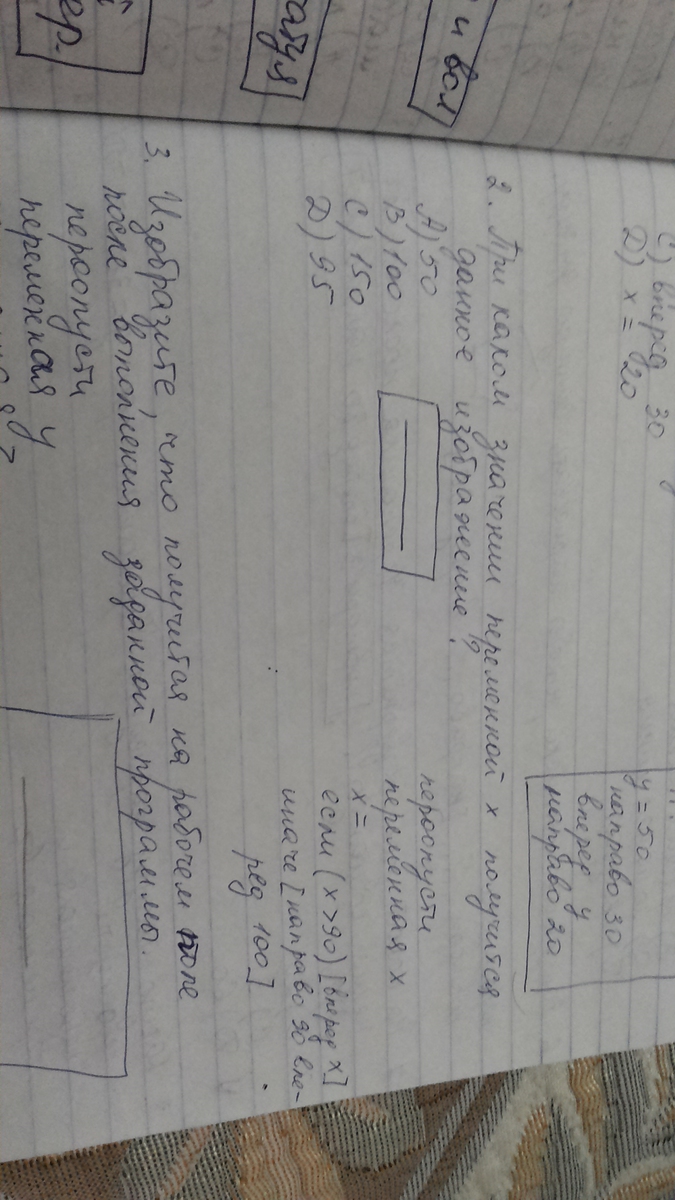 и вол
ер.
C) вперед 30
D) x = 20
y = 50
направо 30
вперед y
направо 20
2. При каком значении переменной x получится
данное изображение?
A) 50
B) 100
C) 150
D) 95
пероопусти
переменная x
x =
если (x>90) [вперед x]
иначе [направо 90 впе-
ред 100]
3. Изобразите, что получится на рабочем поле
после выполнения заданной программы.
пероопусти
переменная y